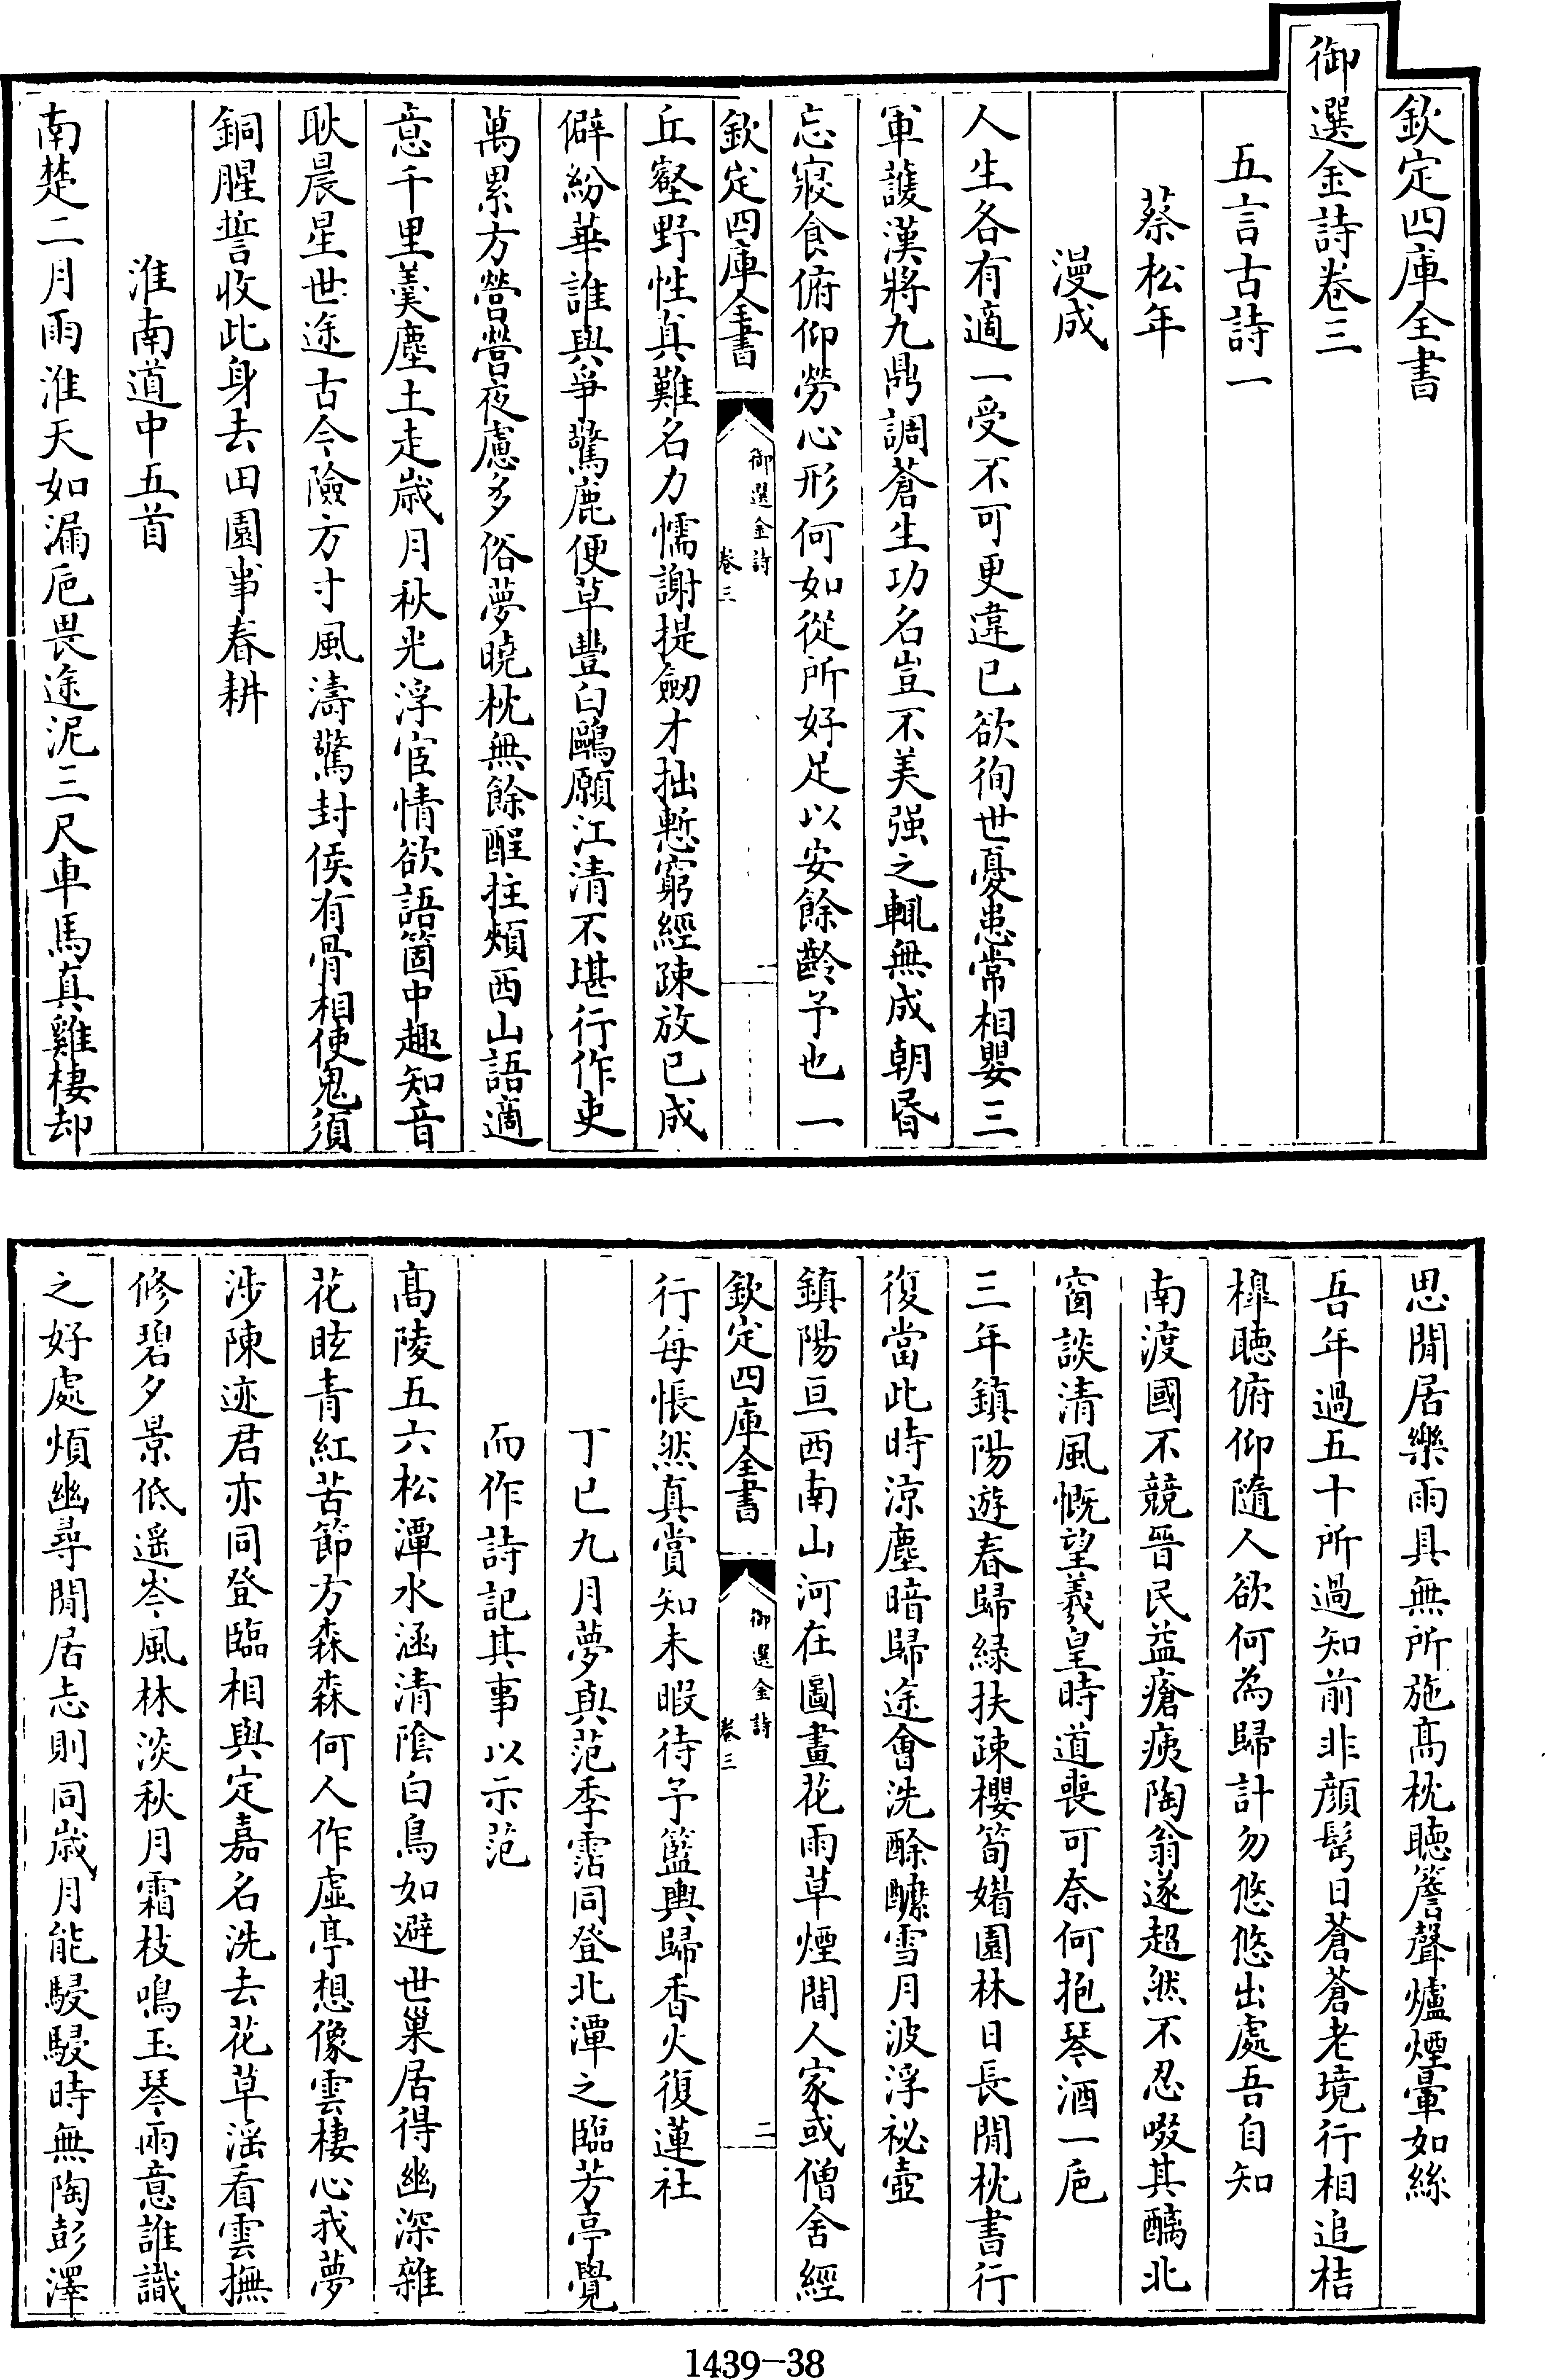 欽定四庫全書
御選金詩卷三
五言古詩一
蔡松年
漫成
人生各有適一受不可更違已欲徇世憂患常相嬰三
軍護漢將九鼎調蒼生功名豈不美强之輒無成朝昏
忘寢食俯仰勞心形何如從所好足以安餘齡予也一
欽定四庫全書
御選金詩
卷三
一
丘壑野性真難名力懦謝提劒才拙慙窮經疎放已成
僻紛華誰與爭驚鹿便草豐白鷗願江清不堪行作吏
萬累方營營夜慮多俗夢曉枕無餘酲拄頰西山語適
意千里羹塵土走歲月秋光浮宦情欲語箇中趣知音
耿晨星世途古今險方寸風濤驚封侯有骨相使鬼須
銅腥誓收此身去田園事春耕
淮南道中五首
南楚二月雨淮天如漏巵畏途泥三尺車馬真雞棲却
思閒居樂雨具無所施髙枕聴簷聲爐煙暈如絲
吾年過五十所過知前非顔髩日蒼蒼老境行相追桔
橰聴俯仰隨人欲何為歸計勿悠悠出處吾自知
南渡國不競晉民益瘡痍陶翁遂超然不忍啜其醨北
窗談清風慨望羲皇時道喪可奈何抱琴酒一巵
三年鎮陽遊春歸緑扶疎櫻筍媚園林日長閒枕書行
復當此時涼塵暗歸途會洗酴醿雪月波浮祕壺
鎮陽亘西南山河在圖畫花雨草煙間人家或僧舍經
欽定四庫全書
御選金詩
卷三
二
行每悵然真賞知未暇待予籃輿歸香火復蓮社
丁巳九月夢與范季霑同登北潭之臨芳亭覺
而作詩記其事以示范
髙陵五六松潭水涵清陰白鳥如避世巢居得幽深雜
花眩青紅苦節方森森何人作虛亭想像雲棲心我夢
涉陳迹君亦同登臨相與定嘉名洗去花草滛看雲撫
修碧夕景低遥岑風林淡秋月霜枝鳴玉琴雨意誰識
之好處煩幽尋閒居志則同歲月能駸駸時無陶彭澤
1439-38